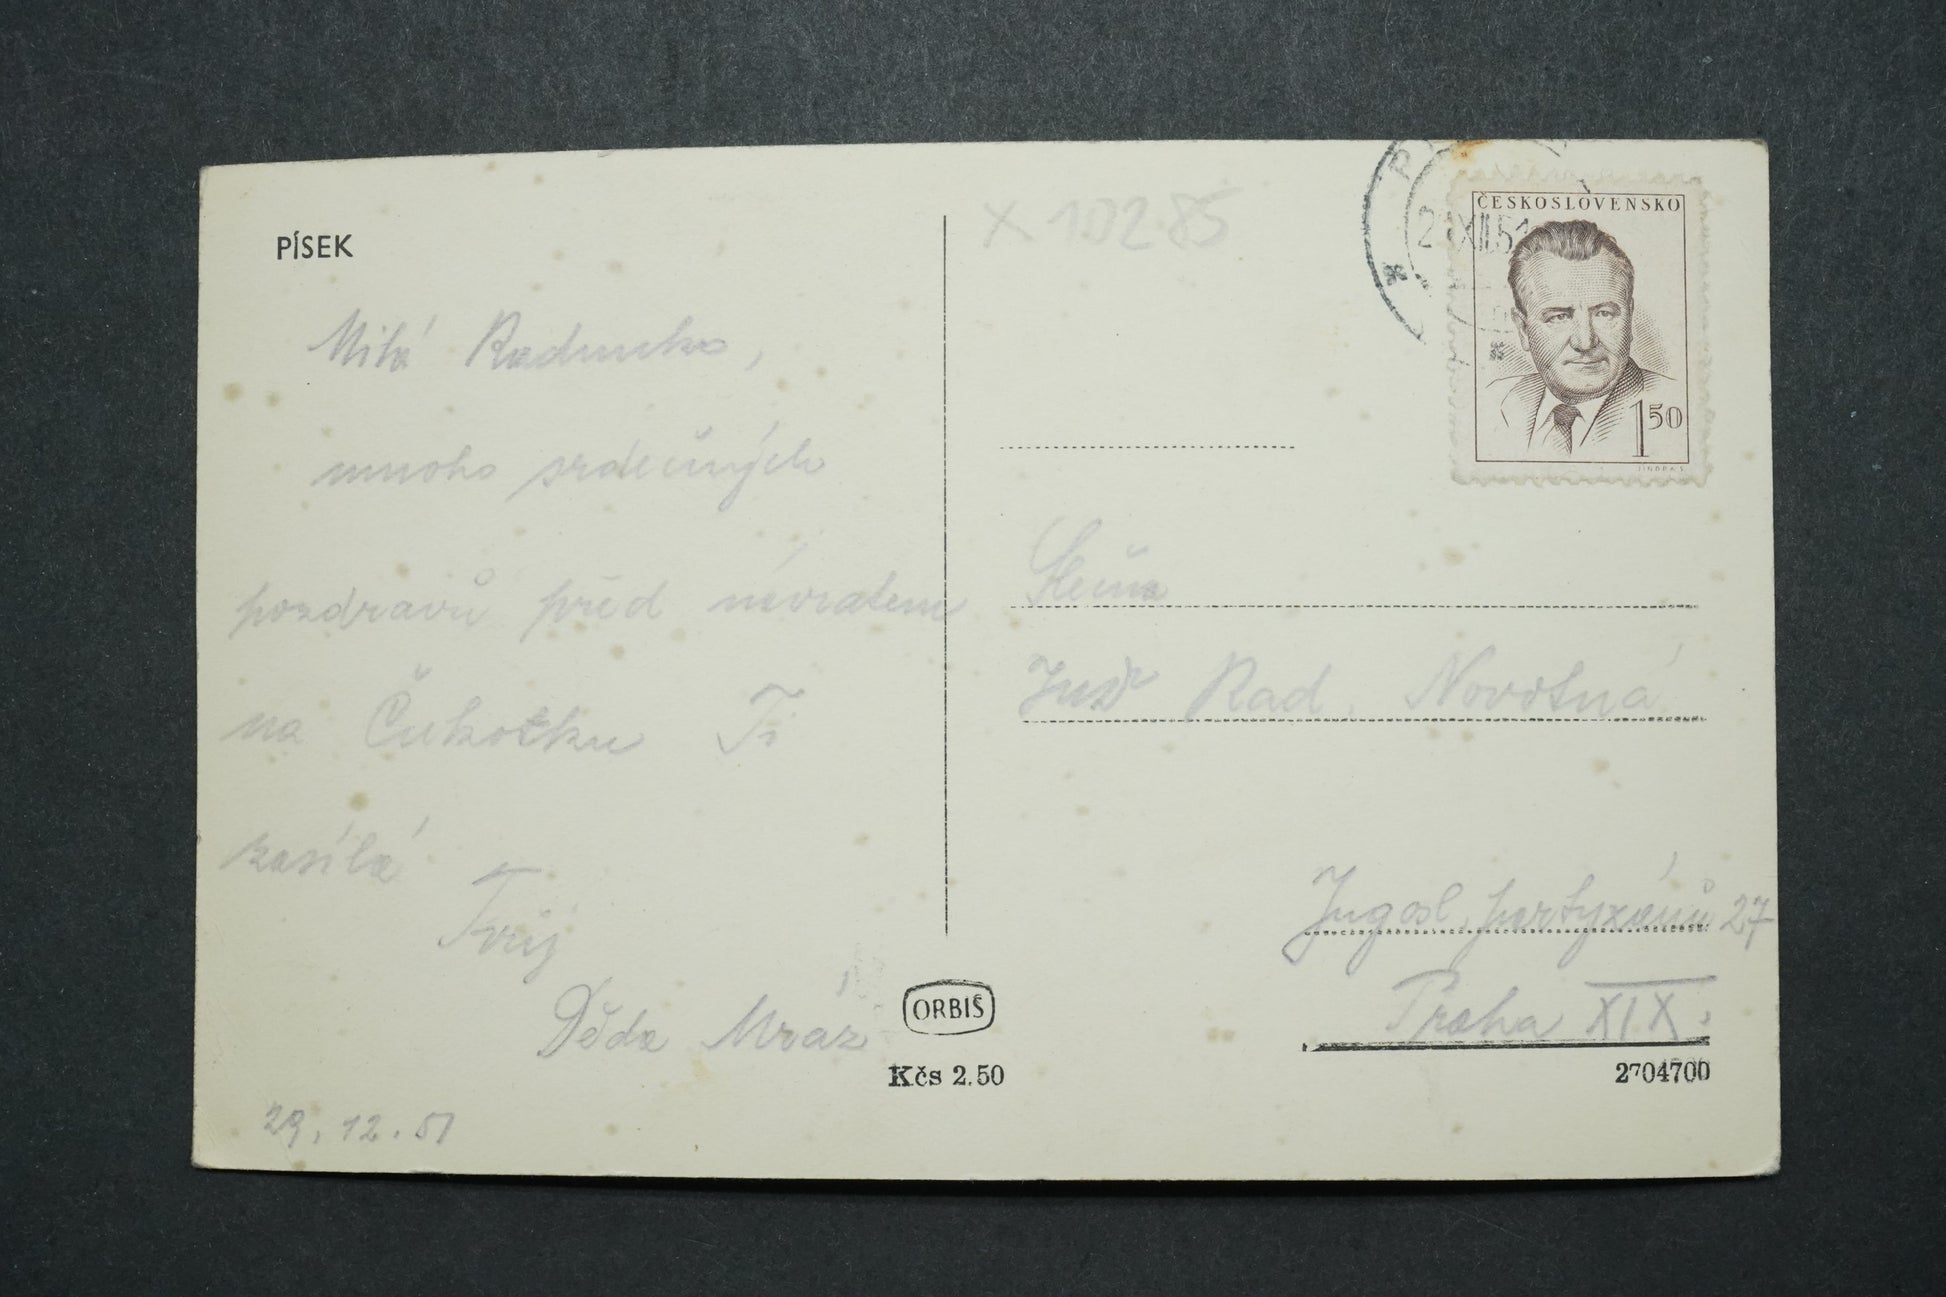 PÍSEK
Milá Radunko,
mnoho srdečných
pozdravů před návratem
na Čukotku Ti
zasílá
Tvůj
Děda Mráz
29.12.51
ORBIS
Kčs 2.50
X 10285
ČESKOSLOVENSKO
1 50
JINDRA S.
XII 51
Rad. Novotná
Jugosl. partyzánů 27
Praha XIX.
2704700